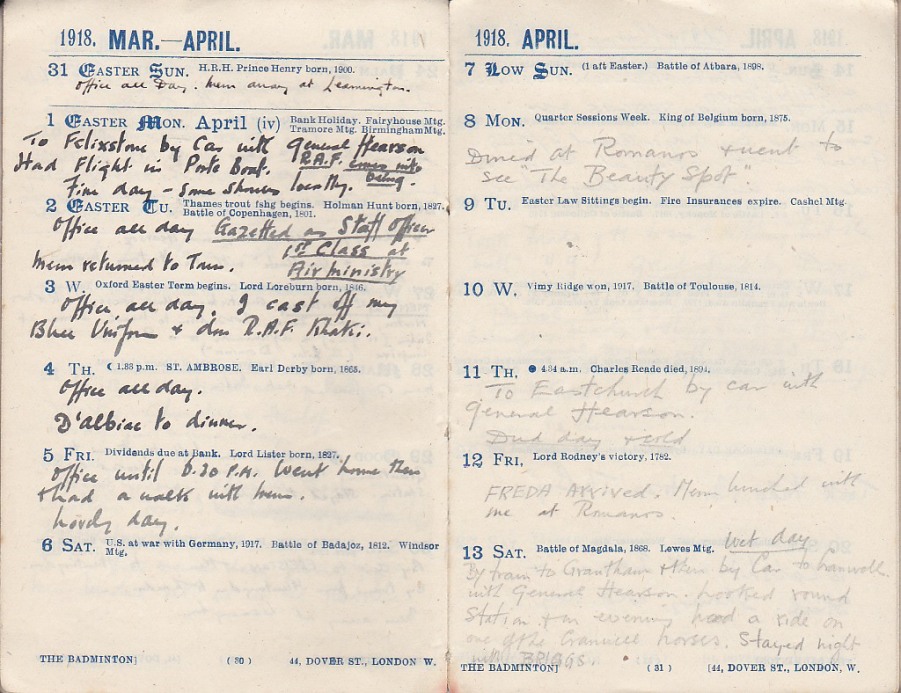 1918. MAR.—APRIL.
31 EASTER SUN. H.R.H. Prince Henry born, 1900.
Office all Day. Mem away at Leamington.
1 EASTER MON. April (iv) Bank Holiday. Fairyhouse Mtg.
Tramore Mtg. Birmingham Mtg.
To Felixstowe by Car with General Hearson
Had Flight in Porte Boat. R.A.F. comes into
Fine day – some showers locally. being.
2 EASTER TU. Thames trout fshg begins. Holman Hunt born, 1827.
Battle of Copenhagen, 1801.
Office all day Gazetted as Staff Officer
1st Class at
Mem returned to Town. Air Ministry
3 W. Oxford Easter Term begins. Lord Loreburn born, 1846.
Office all day. I cast off my
Blue Uniform & don R.A.F. Khaki.
4 TH. ☾ 1.33 p.m. ST. AMBROSE. Earl Derby born, 1865.
Office all day.
D'albiac to dinner.
5 FRI. Dividends due at Bank. Lord Lister born, 1827.
Office until 6.30 P.M. Went home then
& had a walk with Mem.
Lovely day.
6 SAT. U.S. at war with Germany, 1917. Battle of Badajoz, 1812. Windsor
Mtg.
THE BADMINTON] ( 30 ) 44, DOVER ST., LONDON W.
1918. APRIL.
7 LOW SUN. (1 aft Easter.) Battle of Atbara, 1898.
8 MON. Quarter Sessions Week. King of Belgium born, 1875.
Dined at Romanos & went to
see "The Beauty Spot"
9 TU. Easter Law Sittings begin. Fire Insurances expire. Cashel Mtg.
10 W. Vimy Ridge won, 1917. Battle of Toulouse, 1814.
11 TH. ● 4.34 a.m. Charles Reade died, 1894.
To Eastchurch by car with
General Hearson.
Dud day & cold
12 FRI. Lord Rodney's victory, 1782.
FREDA ARRIVED. Mem lunched with
me at Romanos.
13 SAT. Battle of Magdala, 1868. Lewes Mtg. Wet day
By train to Grantham & then by Car to Cranwell
with General Hearson. Looked round
Station & in evening had a ride on
one of the Cranwell horses. Stayed night
with BRIGGS
THE BADMINTON] ( 31 ) [44, DOVER ST., LONDON, W.